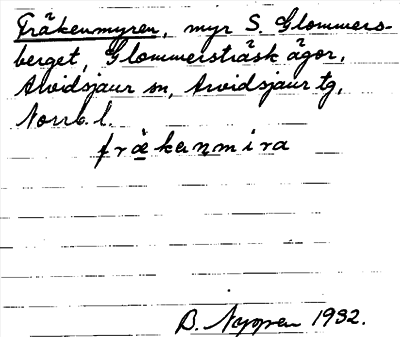 Fräkenmyren, myr S. Glommers-
berget, Glommersträsk ägor,
Arvidsjaur sn, Arvidsjaur tg,
Norrb. l.
frækenmira
B. Nygren 1932.